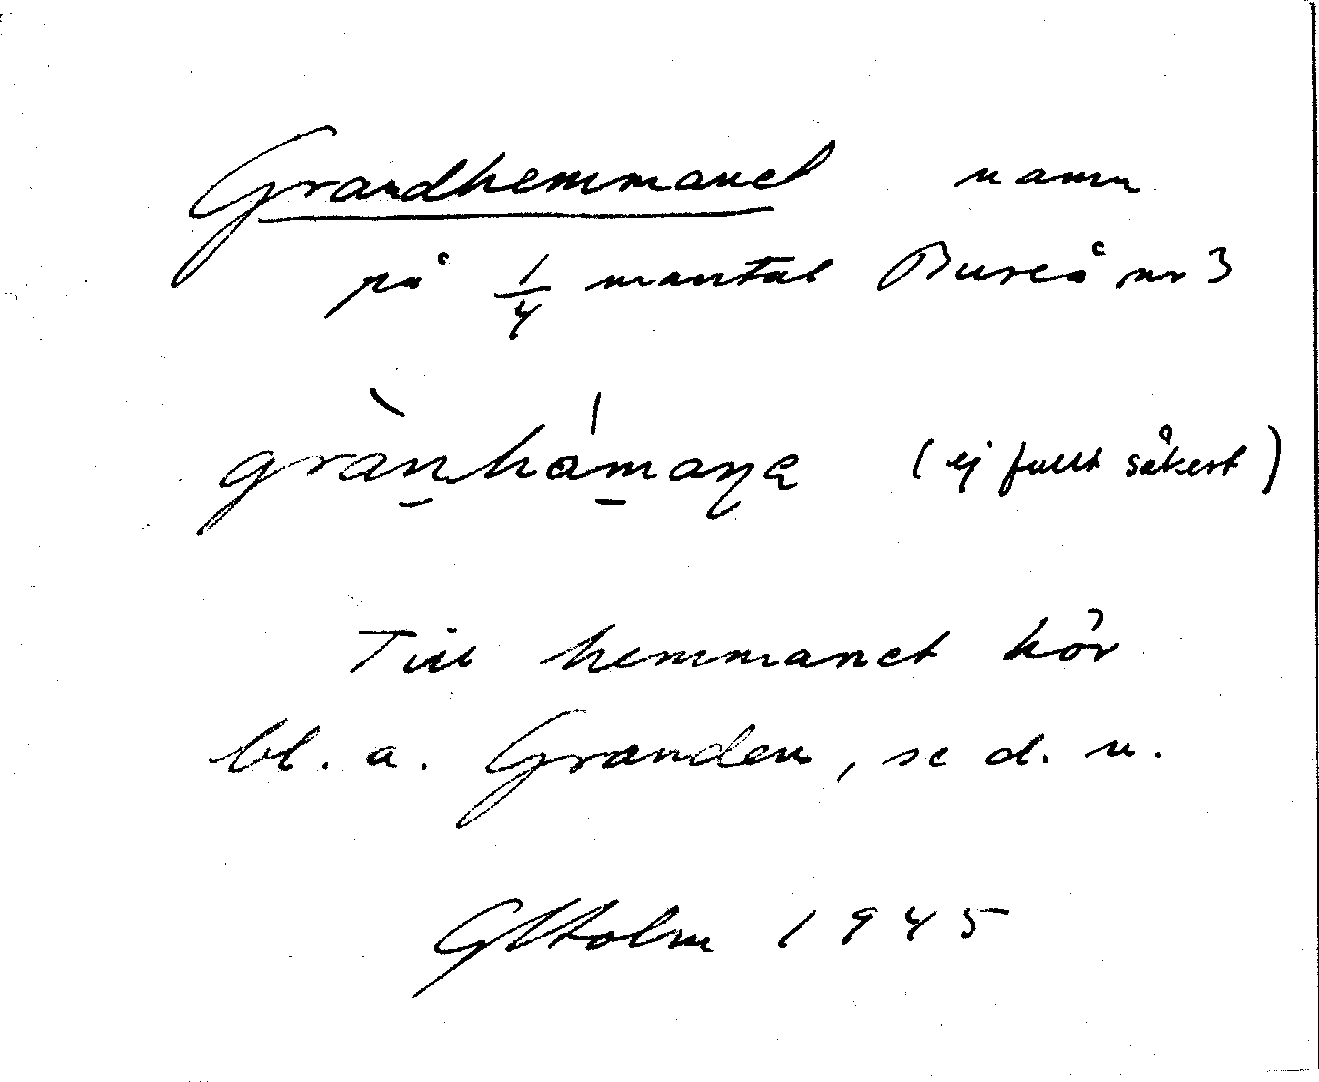 Grandhemmanet namn
på 1/4 mantal Bureå nr 3
gràn̠hám̠aŋe (ej fullt säkert)
Till hemmanet hör
bl. a. Granden, se d. n.
GHolm 1945